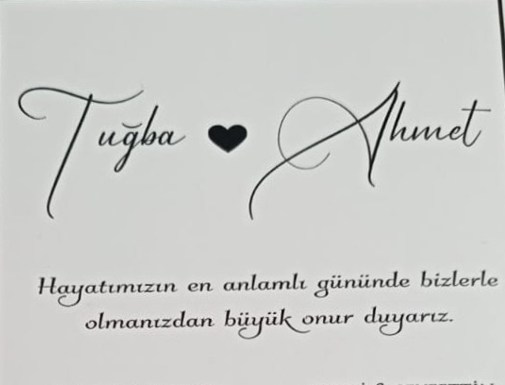 Tuğba ♥ Ahmet
Hayatımızın en anlamlı gününde bizlerle
olmanızdan büyük onur duyarız.